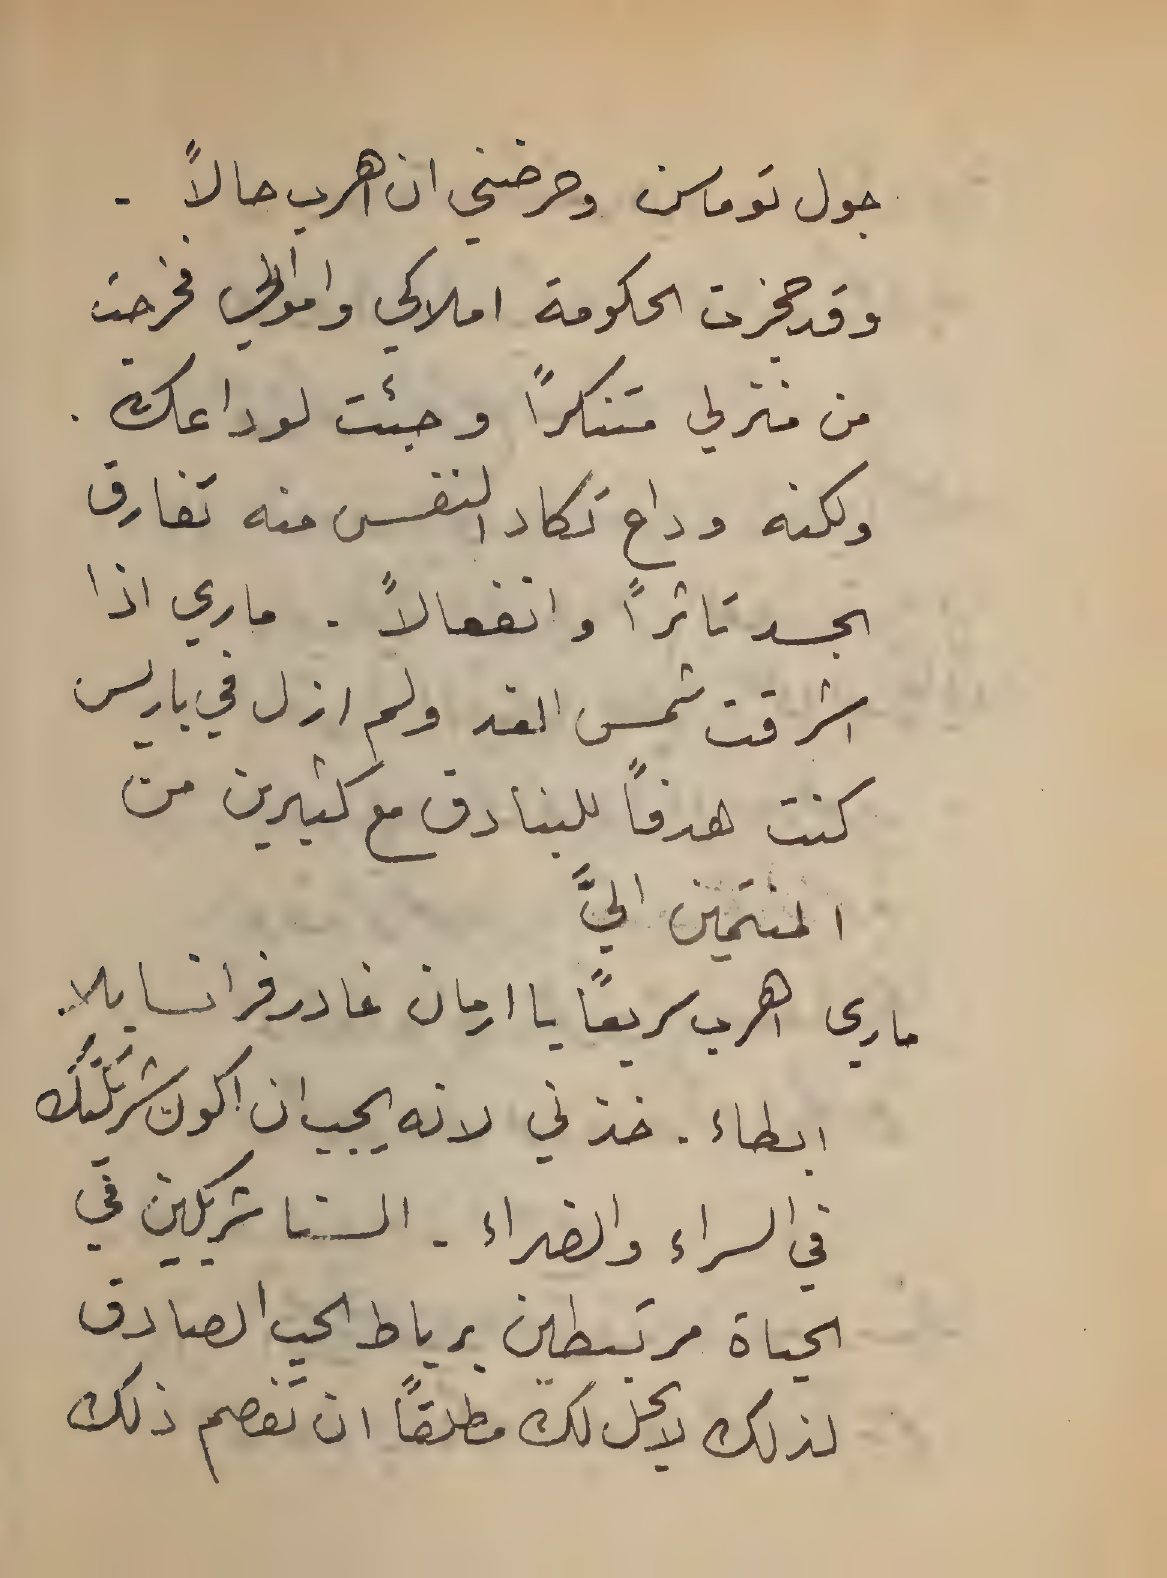 جول توماسن وحرضني ان اهرب حالاً .
وقد حجزت الحكومة املاكي واموالي فخرجت
من منزلي متنكراً وجئت لوداعك .
ولكنه وداع تكاد النفس منه تفارق
الجسد تاثراً وانفعالاً . ماري اذا
اشرقت شمس الغد ولم ازل في باريس
كنت هدفاً للبنادق مع كثيرين من
المنتمين اليَّ
ماري اهرب سريعاً يا ارمان غادر فرانسا بلا
ابطاء . خذني لانه يجب ان اكون شريكتك
في السراء والضراء . السنا شريكين في
الحياة مرتبطين برباط الحب الصادق
لذلك لا يحل لك مطلقاً ان تفصم ذلك